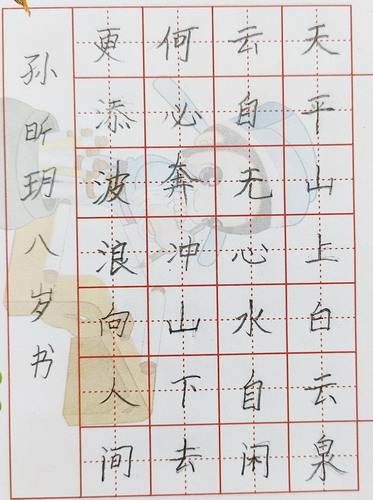 天平山上白云泉
云自无心水自闲
何必奔冲山下去
更添波浪向人间
孙昕玥八岁书